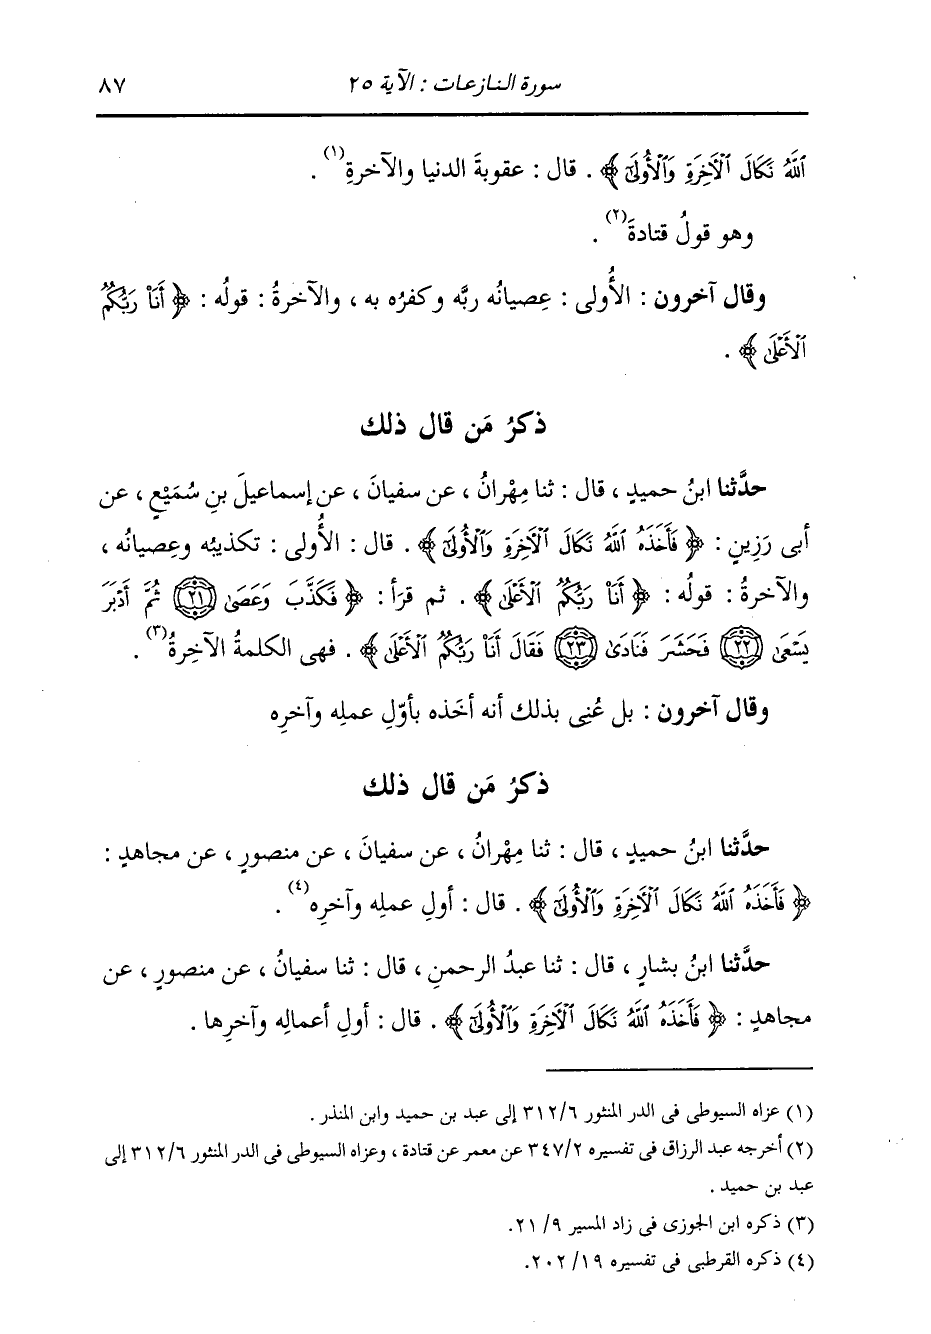 سورة النازعات : الآية ٢٥
٨٧
ٱللَّهُ نَكَالَ ٱلْآخِرَةِ وَٱلْأُولَىٰٓ ﴾ . قال : عقوبةَ الدنيا والآخرةِ(١) .
وهو قولُ قتادةَ(٢) .
وقال آخرون : الأُولى : عِصيانُه ربَّه وكفرُه به ، والآخرةُ : قولُه : ﴿ أَنَا۠ رَبُّكُمُ
ٱلْأَعْلَىٰ ﴾ .
ذكرُ مَن قال ذلك
حدَّثنا ابنُ حميدٍ ، قال : ثنا مِهْرانُ ، عن سفيانَ ، عن إسماعيلَ بنِ سُمَيْعٍ ، عن
أبى رَزِينٍ : ﴿ فَأَخَذَهُ ٱللَّهُ نَكَالَ ٱلْآخِرَةِ وَٱلْأُولَىٰٓ ﴾ . قال : الأُولى : تكذيبُه وعِصيانُه ،
والآخرةُ : قولُه : ﴿ أَنَا۠ رَبُّكُمُ ٱلْأَعْلَىٰ ﴾ . ثم قرَأ : ﴿ فَكَذَّبَ وَعَصَىٰ (٢١) ثُمَّ أَدْبَرَ
يَسْعَىٰ (٢٢) فَحَشَرَ فَنَادَىٰ (٢٣) فَقَالَ أَنَا۠ رَبُّكُمُ ٱلْأَعْلَىٰ ﴾ . فهى الكلمةُ الآخِرةُ(٣) .
وقال آخرون : بل عُنِى بذلك أنه أخَذه بأوَّلِ عملِه وآخرِه
ذكرُ مَن قال ذلك
حدَّثنا ابنُ حميدٍ ، قال : ثنا مِهْرانُ ، عن سفيانَ ، عن منصورٍ ، عن مجاهدٍ :
﴿ فَأَخَذَهُ ٱللَّهُ نَكَالَ ٱلْآخِرَةِ وَٱلْأُولَىٰٓ ﴾ . قال : أولِ عملِه وآخرِه(٤) .
حدَّثنا ابنُ بشارٍ ، قال : ثنا عبدُ الرحمنِ ، قال : ثنا سفيانُ ، عن منصورٍ ، عن
مجاهدٍ : ﴿ فَأَخَذَهُ ٱللَّهُ نَكَالَ ٱلْآخِرَةِ وَٱلْأُولَىٰٓ ﴾ . قال : أولِ أعمالِه وآخرِها .
(١) عزاه السيوطى فى الدر المنثور ٣١٢/٦ إلى عبد بن حميد وابن المنذر .
(٢) أخرجه عبد الرزاق فى تفسيره ٣٤٧/٢ عن معمر عن قتادة ، وعزاه السيوطى فى الدر المنثور ٣١٢/٦ إلى
عبد بن حميد .
(٣) ذكره ابن الجوزى فى زاد المسير ٢١/٩.
(٤) ذكره القرطبى فى تفسيره ٢٠٢/١٩.